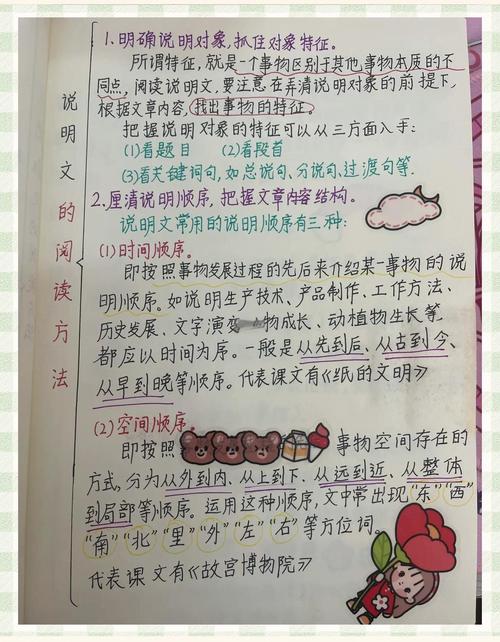 说明文的阅读方法
1.明确说明对象,抓住对象特征。
所谓特征,就是一个事物区别于其他,事物本质的不
同点,阅读说明文,要注意在弄清说明对象的前提下,
根据文章内容,找出事物的特征。
把握说明对象的特征可以从三方面入手:
(1)看题目 (2)看段首
(3)看关键词句,如总说句、分说句、过渡句等.
2.厘清说明顺序,把握文章内容结构。
说明文常用的说明顺序有三种:
(1)时间顺序。
即按照事物发展过程的先后来介绍某一事物的说
明顺序。如说明生产技术、产品制作、工作方法、
历史发展、文字演变、物成长、动植物生长等.
都应以时间为序。一般是从先到后、从古到今、
从早到晚等顺序。代表课文有《纸的文明》
(2)空间顺序。
即按照 事物空间存在的
方式,分为从外到内、从上到下、从远到近、从整体
到局部等顺序。运用这种顺序,文中常出现"东""西"
"南""北""里""外""左""右"等方位词。
代表课文有《故宫博物院》